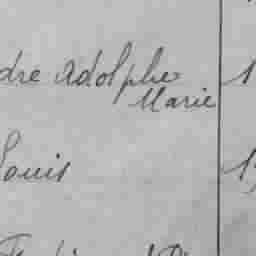 dre Adolphe 1
Marie
Louis 1